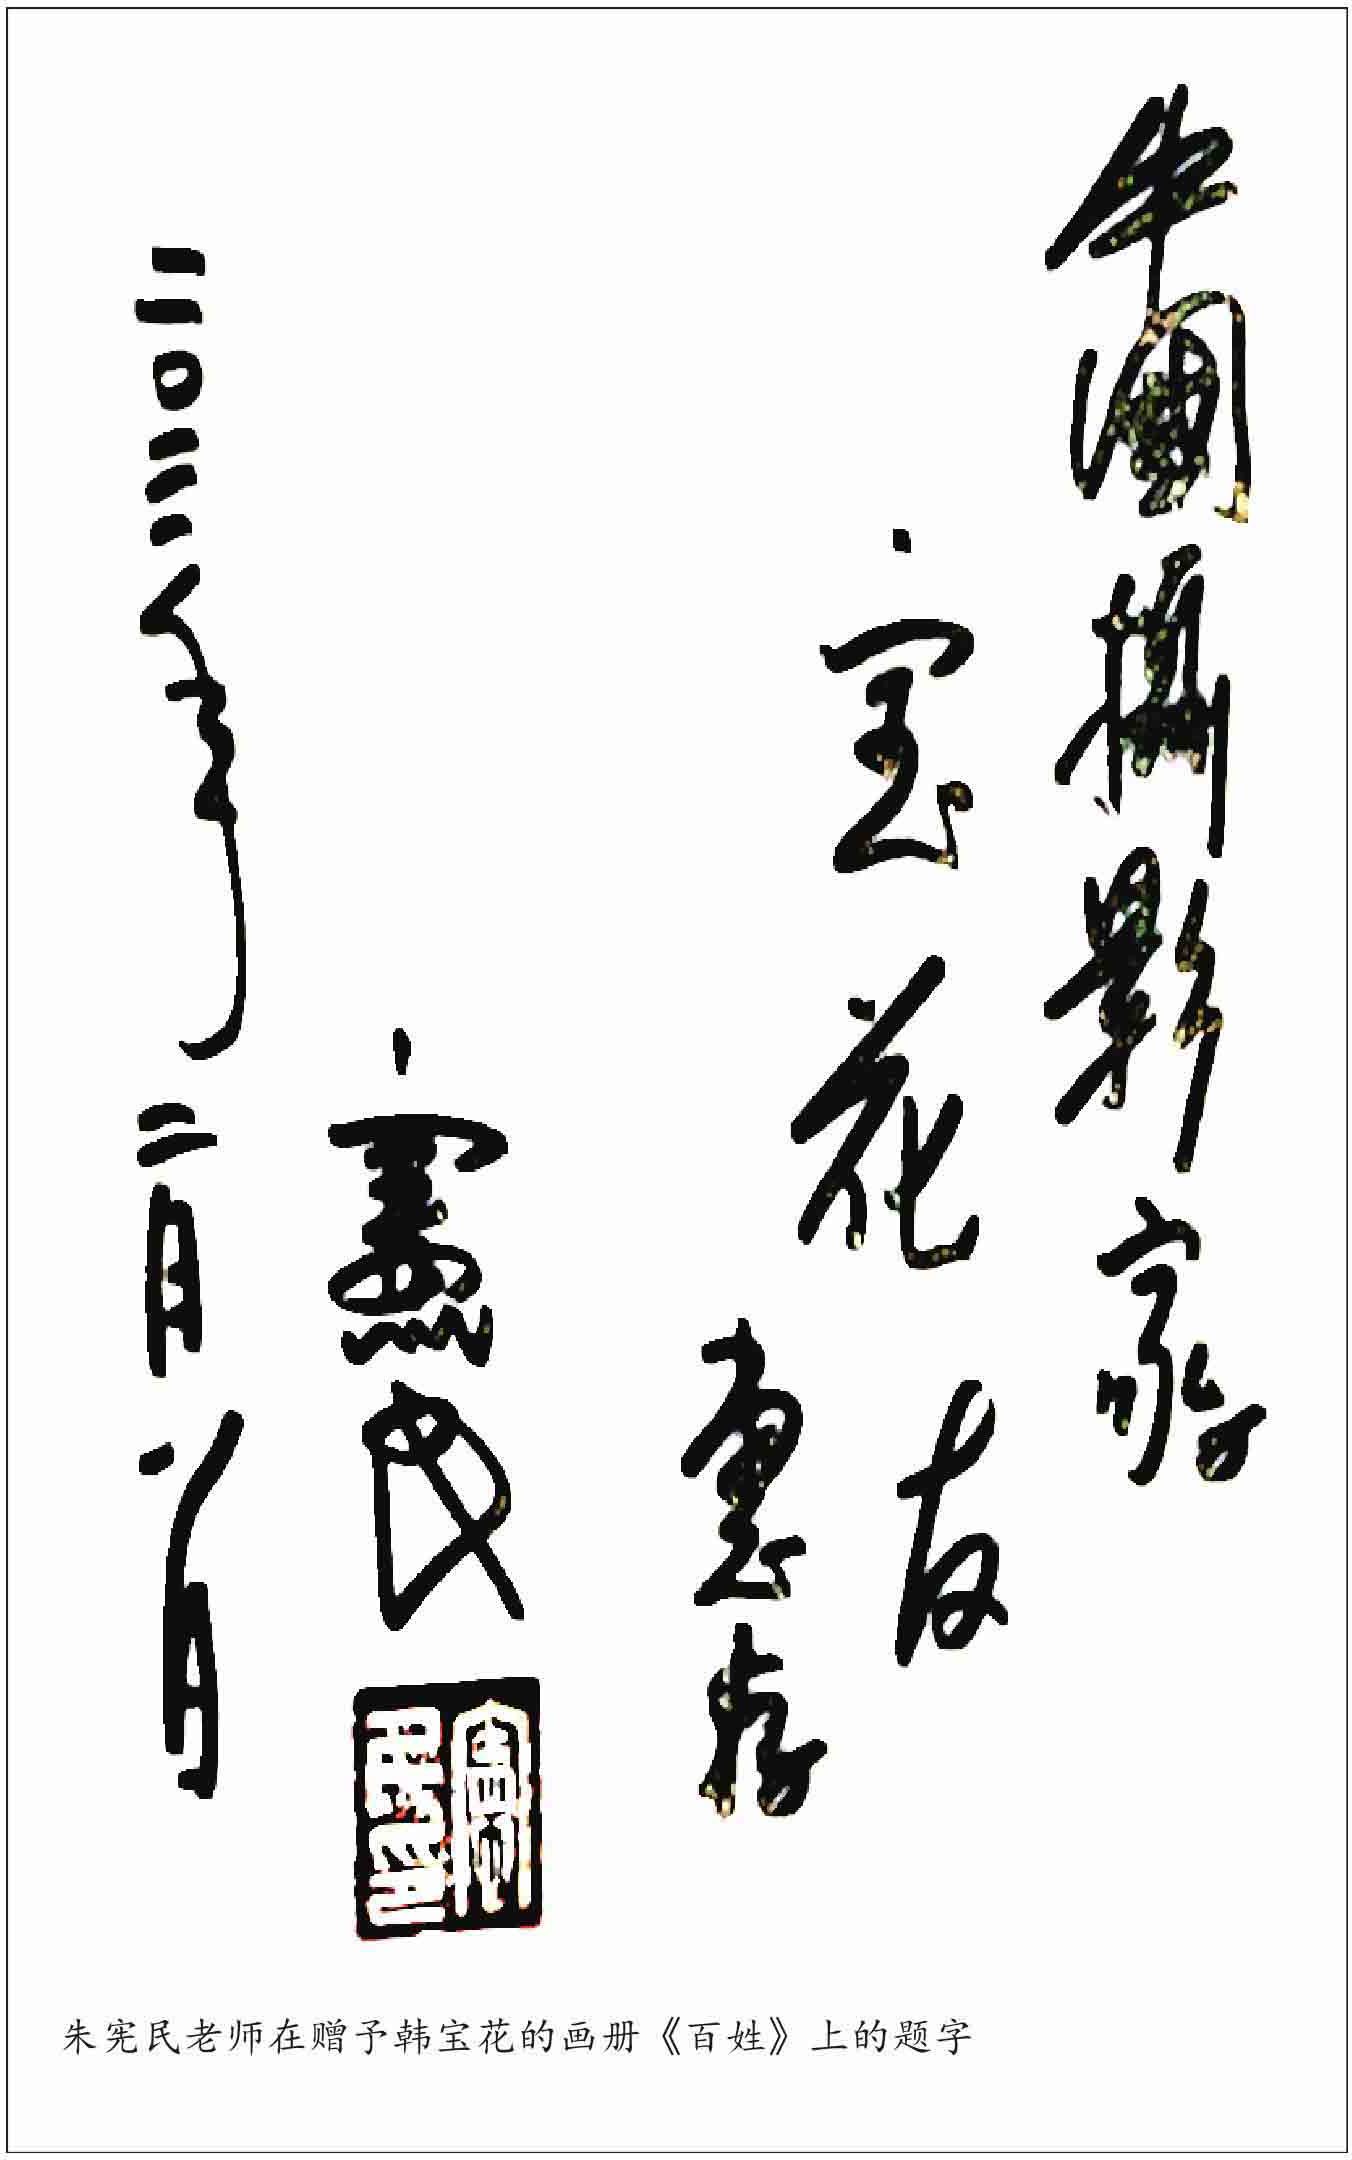 攝影家
宝花友
惠存
憲民
年二月八日
憲民印
朱宪民老师在赠予韩宝花的画册《百姓》上的题字